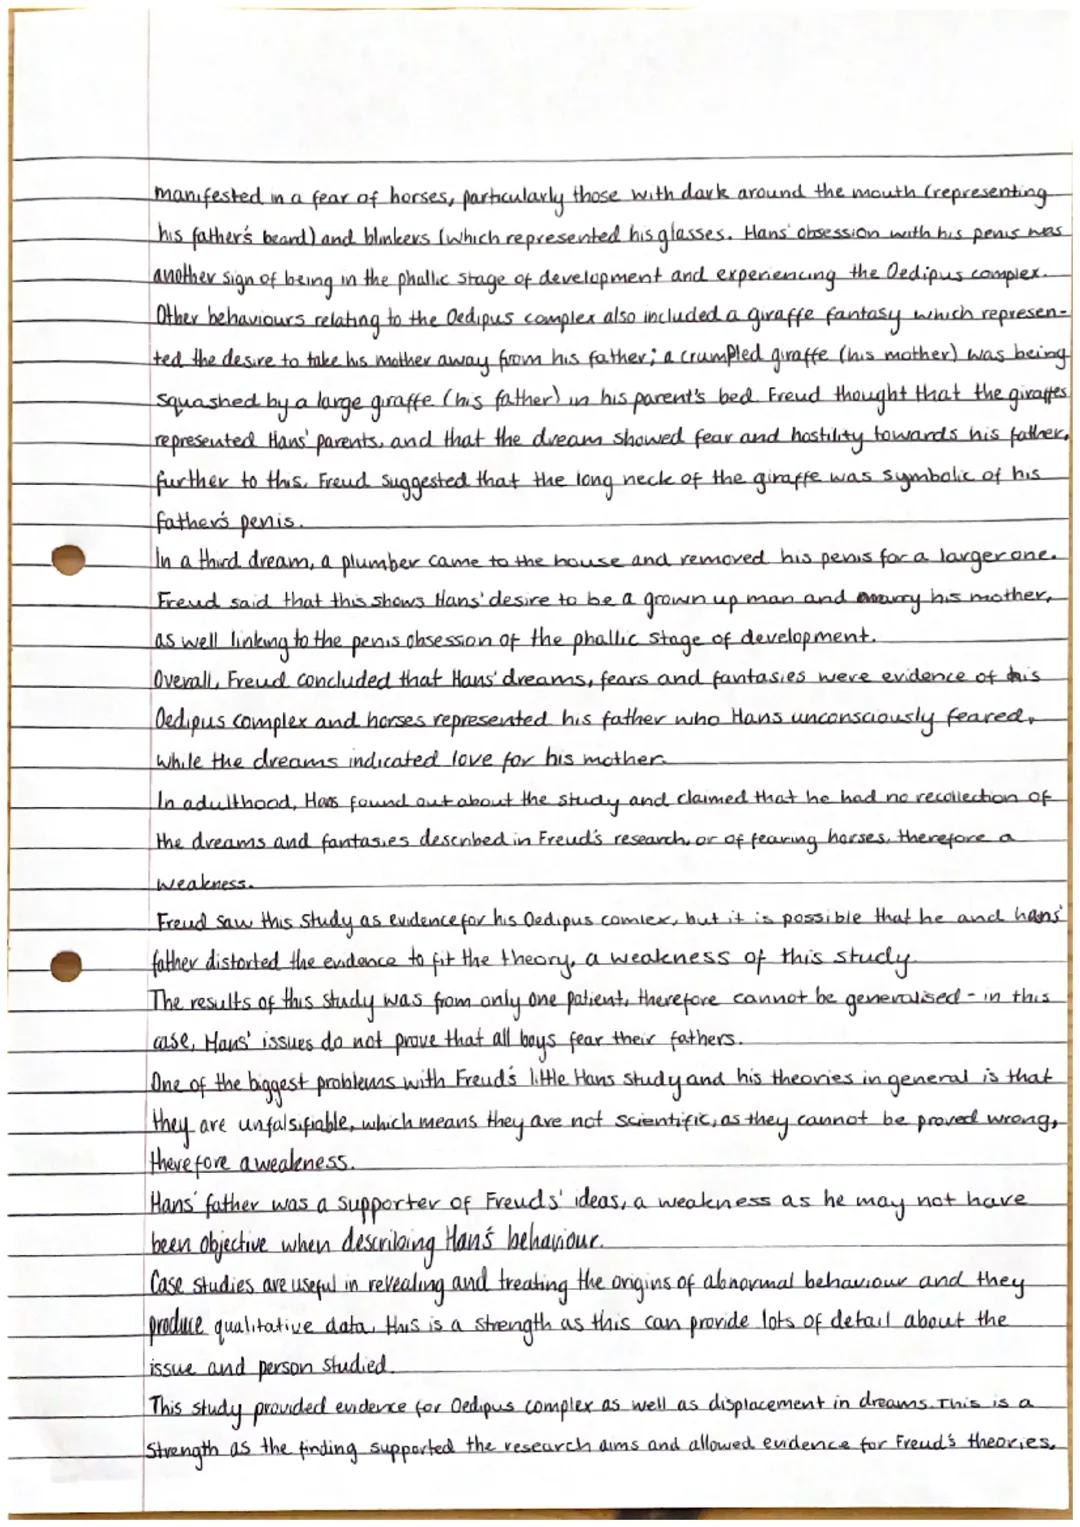 manifested in a fear of horses, particularly those with dark around the mouth (representing
his father's beard) and blinkers (which represented his glasses. Hans' obsession with his penis was
another sign of being in the phallic stage of development and experiencing the Oedipus complex.
Other behaviours relating to the Oedipus complex also included a giraffe fantasy which represen-
ted the desire to take his mother away from his father; a crumpled giraffe (his mother) was being
squashed by a large giraffe (his father) in his parent's bed. Freud thought that the giraffes
represented Hans' parents, and that the dream showed fear and hostility towards his father,
further to this, Freud suggested that the long neck of the giraffe was symbolic of his
father's penis.
In a third dream, a plumber came to the house and removed his penis for a larger one.
Freud said that this shows Hans' desire to be a grown up man and marry his mother,
as well linking to the penis obsession of the phallic stage of development.
Overall, Freud concluded that Hans' dreams, fears and fantasies were evidence of his
Oedipus complex and horses represented his father who Hans unconsciously feared,
while the dreams indicated love for his mother.
In adulthood, Hans found out about the study and claimed that he had no recollection of
the dreams and fantasies described in Freud's research, or of fearing horses, therefore a
weakness.
Freud saw this study as evidence for his Oedipus comlex, but it is possible that he and hans'
father distorted the evidence to fit the theory, a weakness of this study.
The results of this study was from only one patient, therefore cannot be generalised - in this
case, Hans' issues do not prove that all boys fear their fathers.
One of the biggest problems with Freud's little Hans study and his theories in general is that
they are unfalsifiable, which means they are not scientific, as they cannot be proved wrong,
therefore a weakness.
Hans' father was a supporter of Freuds' ideas, a weakness as he may not have
been objective when describing Han's behaviour.
Case studies are useful in revealing and treating the origins of abnormal behaviour and they
produce qualitative data, this is a strength as this can provide lots of detail about the
issue and person studied.
This study provided evidence for Oedipus complex as well as displacement in dreams. This is a
strength as the finding supported the research aims and allowed evidence for Freud's theories.